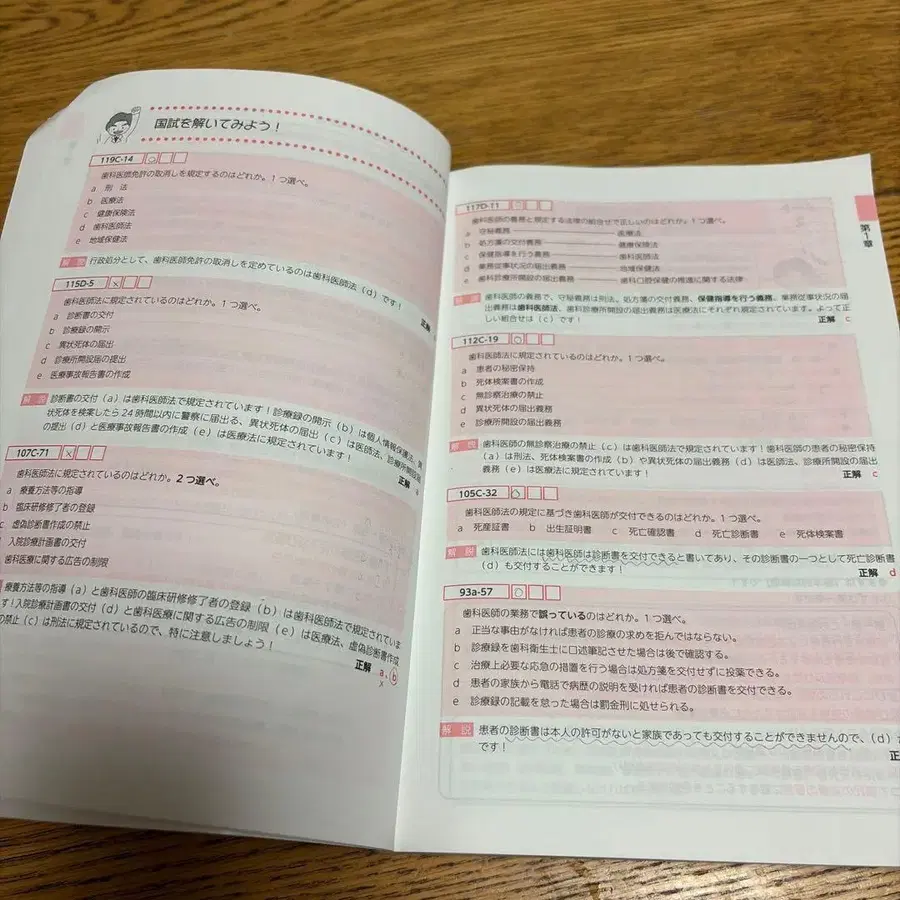 国試を解いてみよう！
119C-14
歯科医師免許の取消しを規定するのはどれか。1つ選べ。
a 刑 法
b 医療法
c 健康保険法
d 歯科医師法
e 地域保健法
解 説 行政処分として、歯科医師免許の取消しを定めているのは歯科医師法（d）です！
正解
115D-5 x
歯科医師法に規定されているのはどれか。1つ選べ。
a 診断書の交付
b 診療録の開示
c 異状死体の届出
d 診療所開設届の提出
e 医療事故報告書の作成
解 説 診断書の交付（a）は歯科医師法で規定されています！診療録の開示（b）は個人情報保護法、異
状死体を検案したら24時間以内に警察に届出る、異状死体の届出（c）は医師法、診療所開設届
の提出（d）と医療事故報告書の作成（e）は医療法に規定されています！
正解 a
107C-71 x
歯科医師法に規定されているのはどれか。2つ選べ。
a 療養方法等の指導
b 臨床研修修了者の登録
c 虚偽診断書作成の禁止
入院診療計画書の交付
歯科医療に関する広告の制限
療養方法等の指導（a）と歯科医師の臨床研修修了者の登録（b）は歯科医師法で規定されていま
す！入院診療計画書の交付（d）と歯科医療に関する広告の制限（e）は医療法、虚偽診断書作成
の禁止（c）は刑法に規定されているので、特に注意しましょう！
正解 a、b
x
第1章
117D-11
歯科医師の義務と規定する法律の組合せで正しいのはどれか。1つ選べ。
a 守秘義務 ――― 医療法
b 処方箋の交付義務 ――― 健康保険法
c 保健指導を行う義務 ――― 歯科医師法
d 業務従事状況の届出義務 ――― 地域保健法
e 歯科診療所開設の届出義務 ――― 歯科口腔保健の推進に関する法律
解 説 歯科医師の義務で、守秘義務は刑法、処方箋の交付義務、保健指導を行う義務、業務従事状況の届
出義務は歯科医師法、歯科診療所開設の届出義務は医療法にそれぞれ規定されています。よって正
しい組合せは（c）です！
正解 c
112C-19
歯科医師法に規定されているのはどれか。1つ選べ。
a 患者の秘密保持
b 死体検案書の作成
c 無診察治療の禁止
d 異状死体の届出義務
e 診療所開設の届出義務
解 説 歯科医師の無診察治療の禁止（c）は歯科医師法で規定されています！歯科医師の患者の秘密保持
（a）は刑法、死体検案書の作成（b）や異状死体の届出義務（d）は医師法、診療所開設の届出
義務（e）は医療法に規定されています！
正解 c
105C-32
歯科医師法の規定に基づき歯科医師が交付できるのはどれか。1つ選べ。
a 死産証書 b 出生証明書 c 死亡確認書 d 死亡診断書 e 死体検案書
解 説 歯科医師法には歯科医師は診断書を交付できると書いてあり、その診断書の一つとして死亡診断書
（d）も交付することができます！
正解 d
93a-57
歯科医師の業務で誤っているのはどれか。1つ選べ。
a 正当な事由がなければ患者の診療の求めを拒んではならない。
b 診療録を歯科衛生士に口述筆記させた場合は後で確認する。
c 治療上必要な応急の措置を行う場合は処方箋を交付せずに投薬できる。
d 患者の家族から電話で病歴の説明を受ければ患者の診断書を交付できる。
e 診療録の記載を怠った場合は罰金刑に処せられる。
解 説 患者の診断書は本人の許可がないと家族であっても交付することができませんので、（d）
です！